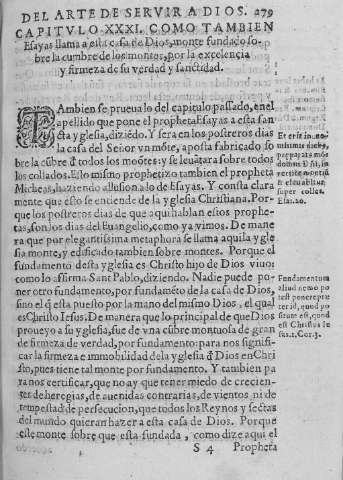 DEL ARTE DE SERVIR A DIOS. 279
CAPITVLO XXXI. COMO TAMBIEN
Esayas llama a esta casa de Dios, monte fundado so-
bre la cumbre de los montes, por la excelencia
y firmeza de su verdad y sanctidad.
TAmbien se prueua lo del capitulo passado, en el
apellido que pone el propheta Esayas a esta san
cta yglesia, diziẽdo. Y sera en los postreros dias
la casa del Señor vn mõte, aposta fabricado so
bre la cũbre đ todos los mõtes: y se leuãtara sobre todos
los collados. Esto mismo prophetizo tambien el propheta
Micheas, haziendo allusion a lo de Esayas. Y consta clara
mente que esto se entiende de la yglesia Christiana. Por-
que los postreros dias de que aqui hablan estos prophe-
tas, son los dias del Euangelio, como ya vimos. De mane
ra que por elegantissima metaphora se llama aquila ygle
sia monte, y edificado tambien sobre montes. Porque el
fundamento desta yglesia es Christo hijo de Dios viuo:
como lo afirma Sant Pablo, diziendo. Nadie puede po-
ner otro fundamento, por fundamẽto de la casa de Dios,
sino el q̃ esta puesto por la mano del mismo Dios, el qual
es Christo Iesus. De manera que lo principal de que Dios
proueyo a su yglesia, fue de vna cũbre montuosa de gran
de firmeza de verdad, por fundamento: para nos signifi-
car la firmeza e immobilidad dela yglesia đ Dios en Chri
sto, pues tiene tal monte por fundamento. Y tambien pa
ra nos certificar, que no ay que tener miedo de crecien-
tes de heregias, de auenidas contrarias, de vientos ni de
tempestad de persecucion, que todos los Reynos y sectas
del mundo quieran hazer a esta casa de Dios. Porque
este monte sobre que esta fundada, como dize aqui el
S 4 Propheta
Et erit in no-
uissimis diebus
præparatus mõs
domus Dñi, in
vertice montiũ
& eleuabitur
super colles.
Esai. 20.
Fundamentum
aliud nemo po
test ponere præ
ter id, quod po
situm est, quod
est Christus Ie
sus. 1. Cor. 3.